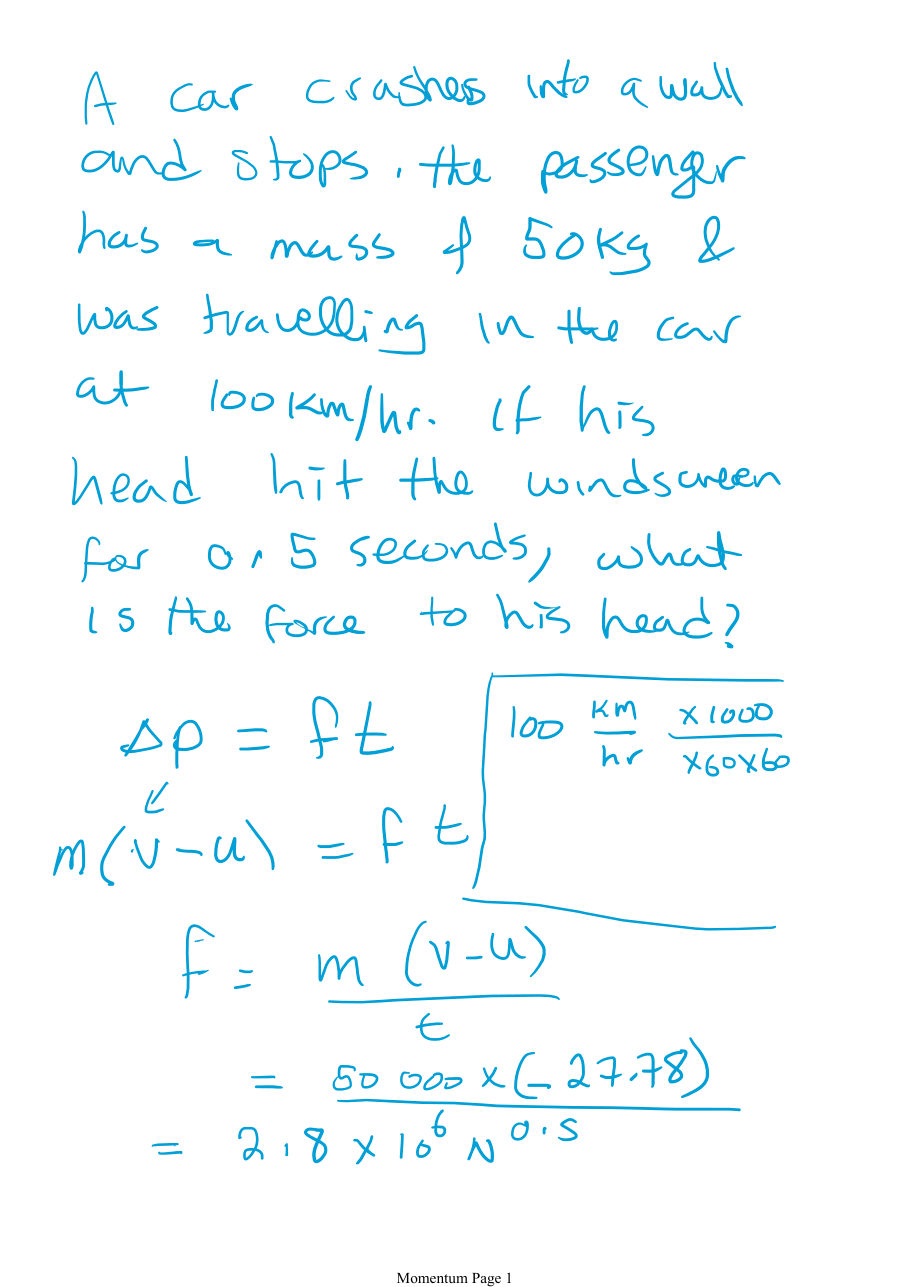 A car crashes into a wall
and stops. the passenger
has a mass of 50kg &
was travelling in the car
at 100km/hr. If his
head hit the windscreen
for 0.5 seconds, what
is the force to his head?
Δp = ft
100 km/hr x1000/x60x60
↙
m(v-u) = ft
F = m (v-u)/t
= 50 000 x (-27.78)/0.5
= 2.8 x 10⁶ N
Momentum Page 1